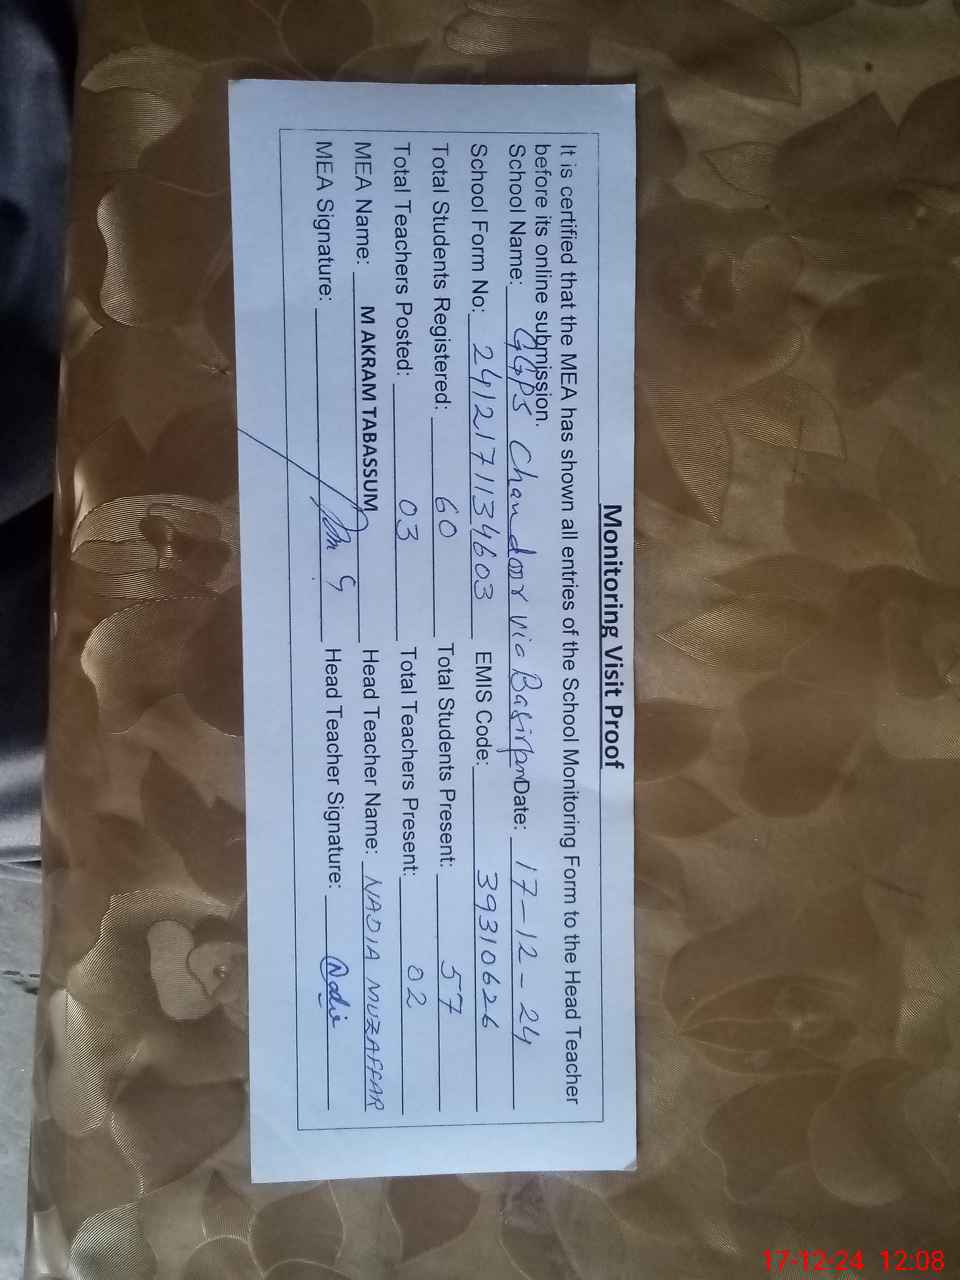 Monitoring Visit Proof
It is certified that the MEA has shown all entries of the School Monitoring Form to the Head Teacher
before its online submission.
School Name: GGPS Chandoor via Basirpur Date: 17-12-24
School Form No: 2412171134603 EMIS Code: 39310626
Total Students Registered: 60 Total Students Present: 57
Total Teachers Posted: 03 Total Teachers Present: 02
MEA Name: M AKRAM TABASSUM Head Teacher Name: NADIA MUZAFFAR
MEA Signature: Head Teacher Signature: Nadia
17-12-24 12:08